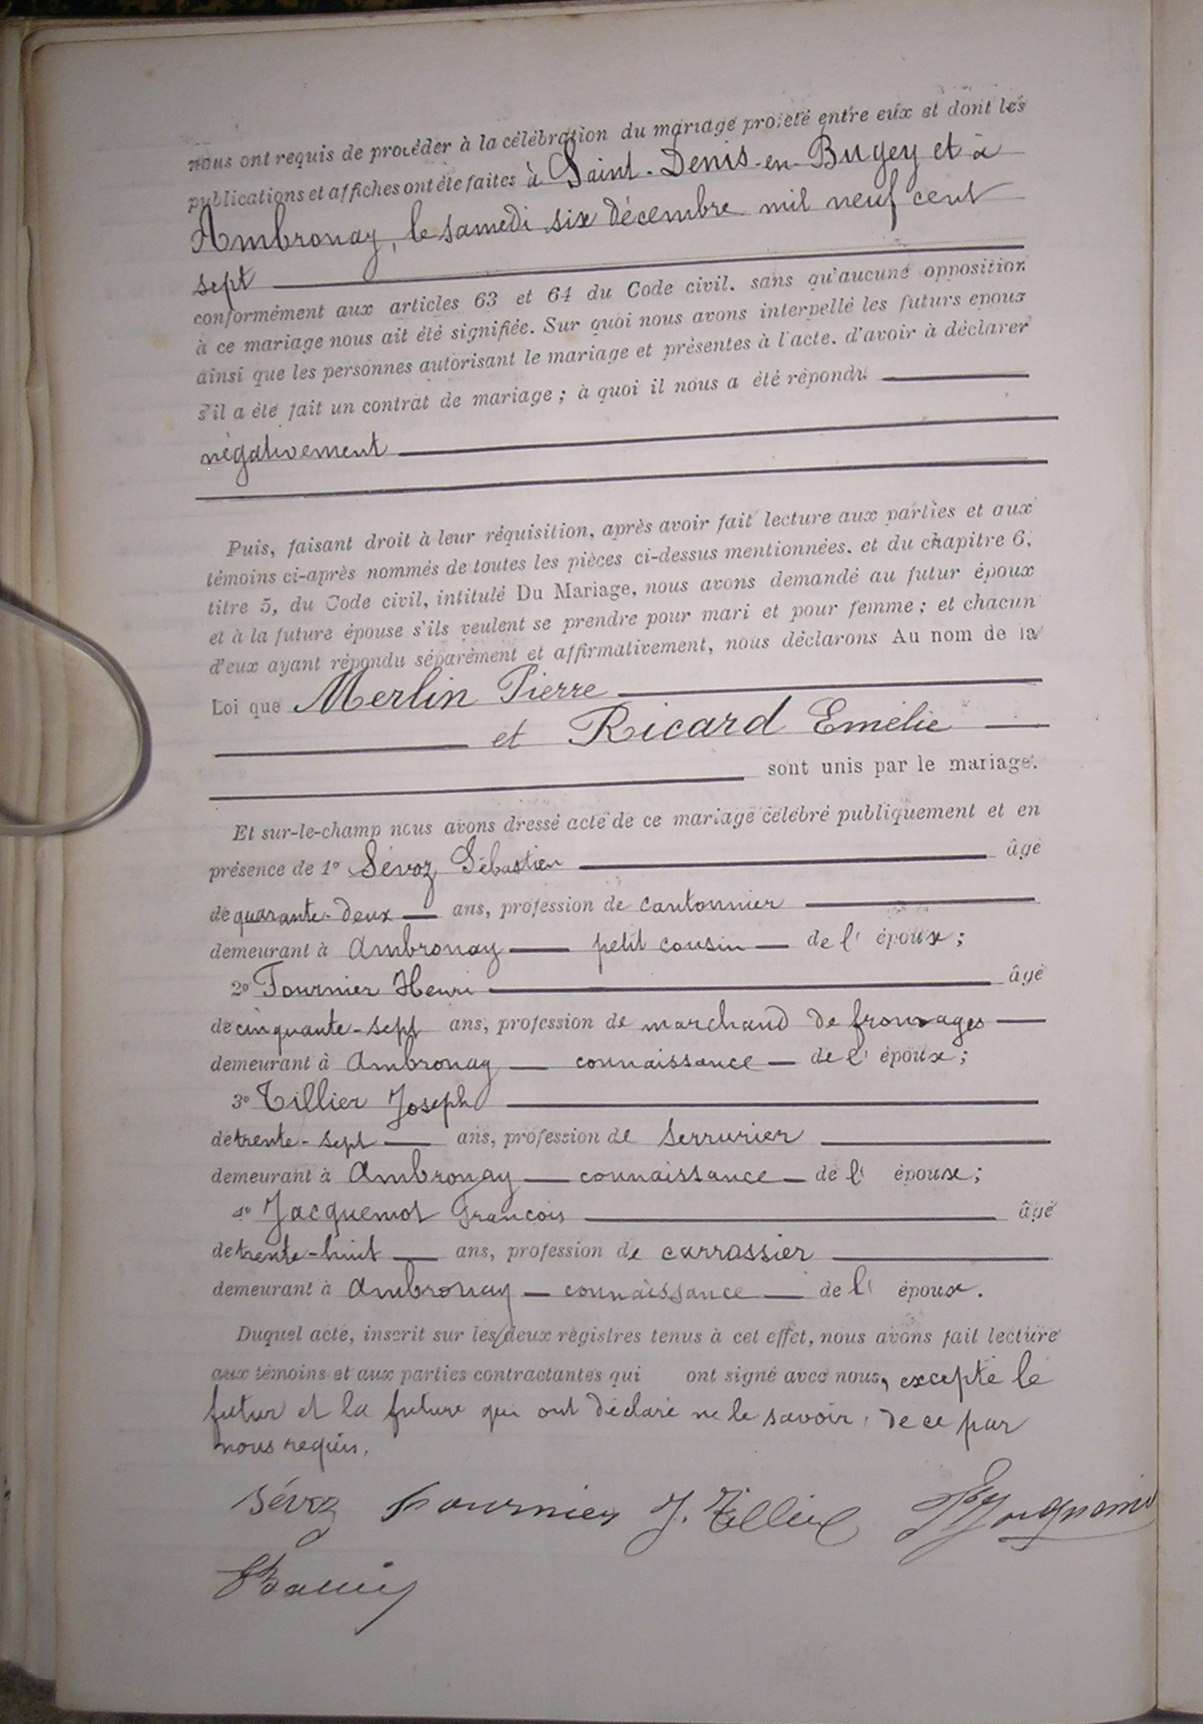 nous ont requis de procéder à la célébration du mariage projeté entre eux et dont les
publications et affiches ont été faites à Saint-Denis-en-Bugey et à
Ambronay, le samedi six décembre mil neuf cent
sept
conformément aux articles 63 et 64 du Code civil, sans qu'aucune opposition
à ce mariage nous ait été signifiée. Sur quoi nous avons interpellé les futurs époux
ainsi que les personnes autorisant le mariage et présentes à l'acte, d'avoir à déclarer
s'il a été fait un contrat de mariage ; à quoi il nous a été répondu
négativement
Puis, faisant droit à leur réquisition, après avoir fait lecture aux parties et aux
témoins ci-après nommés de toutes les pièces ci-dessus mentionnées, et du chapitre 6,
titre 5, du Code civil, intitulé Du Mariage, nous avons demandé au futur époux
et à la future épouse s'ils veulent se prendre pour mari et pour femme ; et chacun
d'eux ayant répondu séparément et affirmativement, nous déclarons Au nom de la
Loi que Merlin Pierre
et Ricard Emélie
sont unis par le mariage.
Et sur-le-champ nous avons dressé acte de ce mariage célébré publiquement et en
présence de 1° Sévoz Sébastien âgé
de quarante-deux ans, profession de cantonnier
demeurant à Ambronay petit cousin de l'époux ;
2° Fournier Henri âgé
de cinquante-sept ans, profession de marchand de fromages
demeurant à Ambronay connaissance de l'époux ;
3° Tillier Joseph
de trente-sept ans, profession de serrurier
demeurant à Ambronay connaissance de l'époux ;
4° Jacquemot François âgé
de trente-huit ans, profession de carrossier
demeurant à Ambronay connaissance de l'époux.
Duquel acte, inscrit sur les deux régistres tenus à cet effet, nous avons fait lecture
aux témoins et aux parties contractantes qui ont signé avec nous, excepté le
futur et la future qui ont déclaré ne le savoir, de ce par
nous requis.
Sévoz Fournier J. Tillier